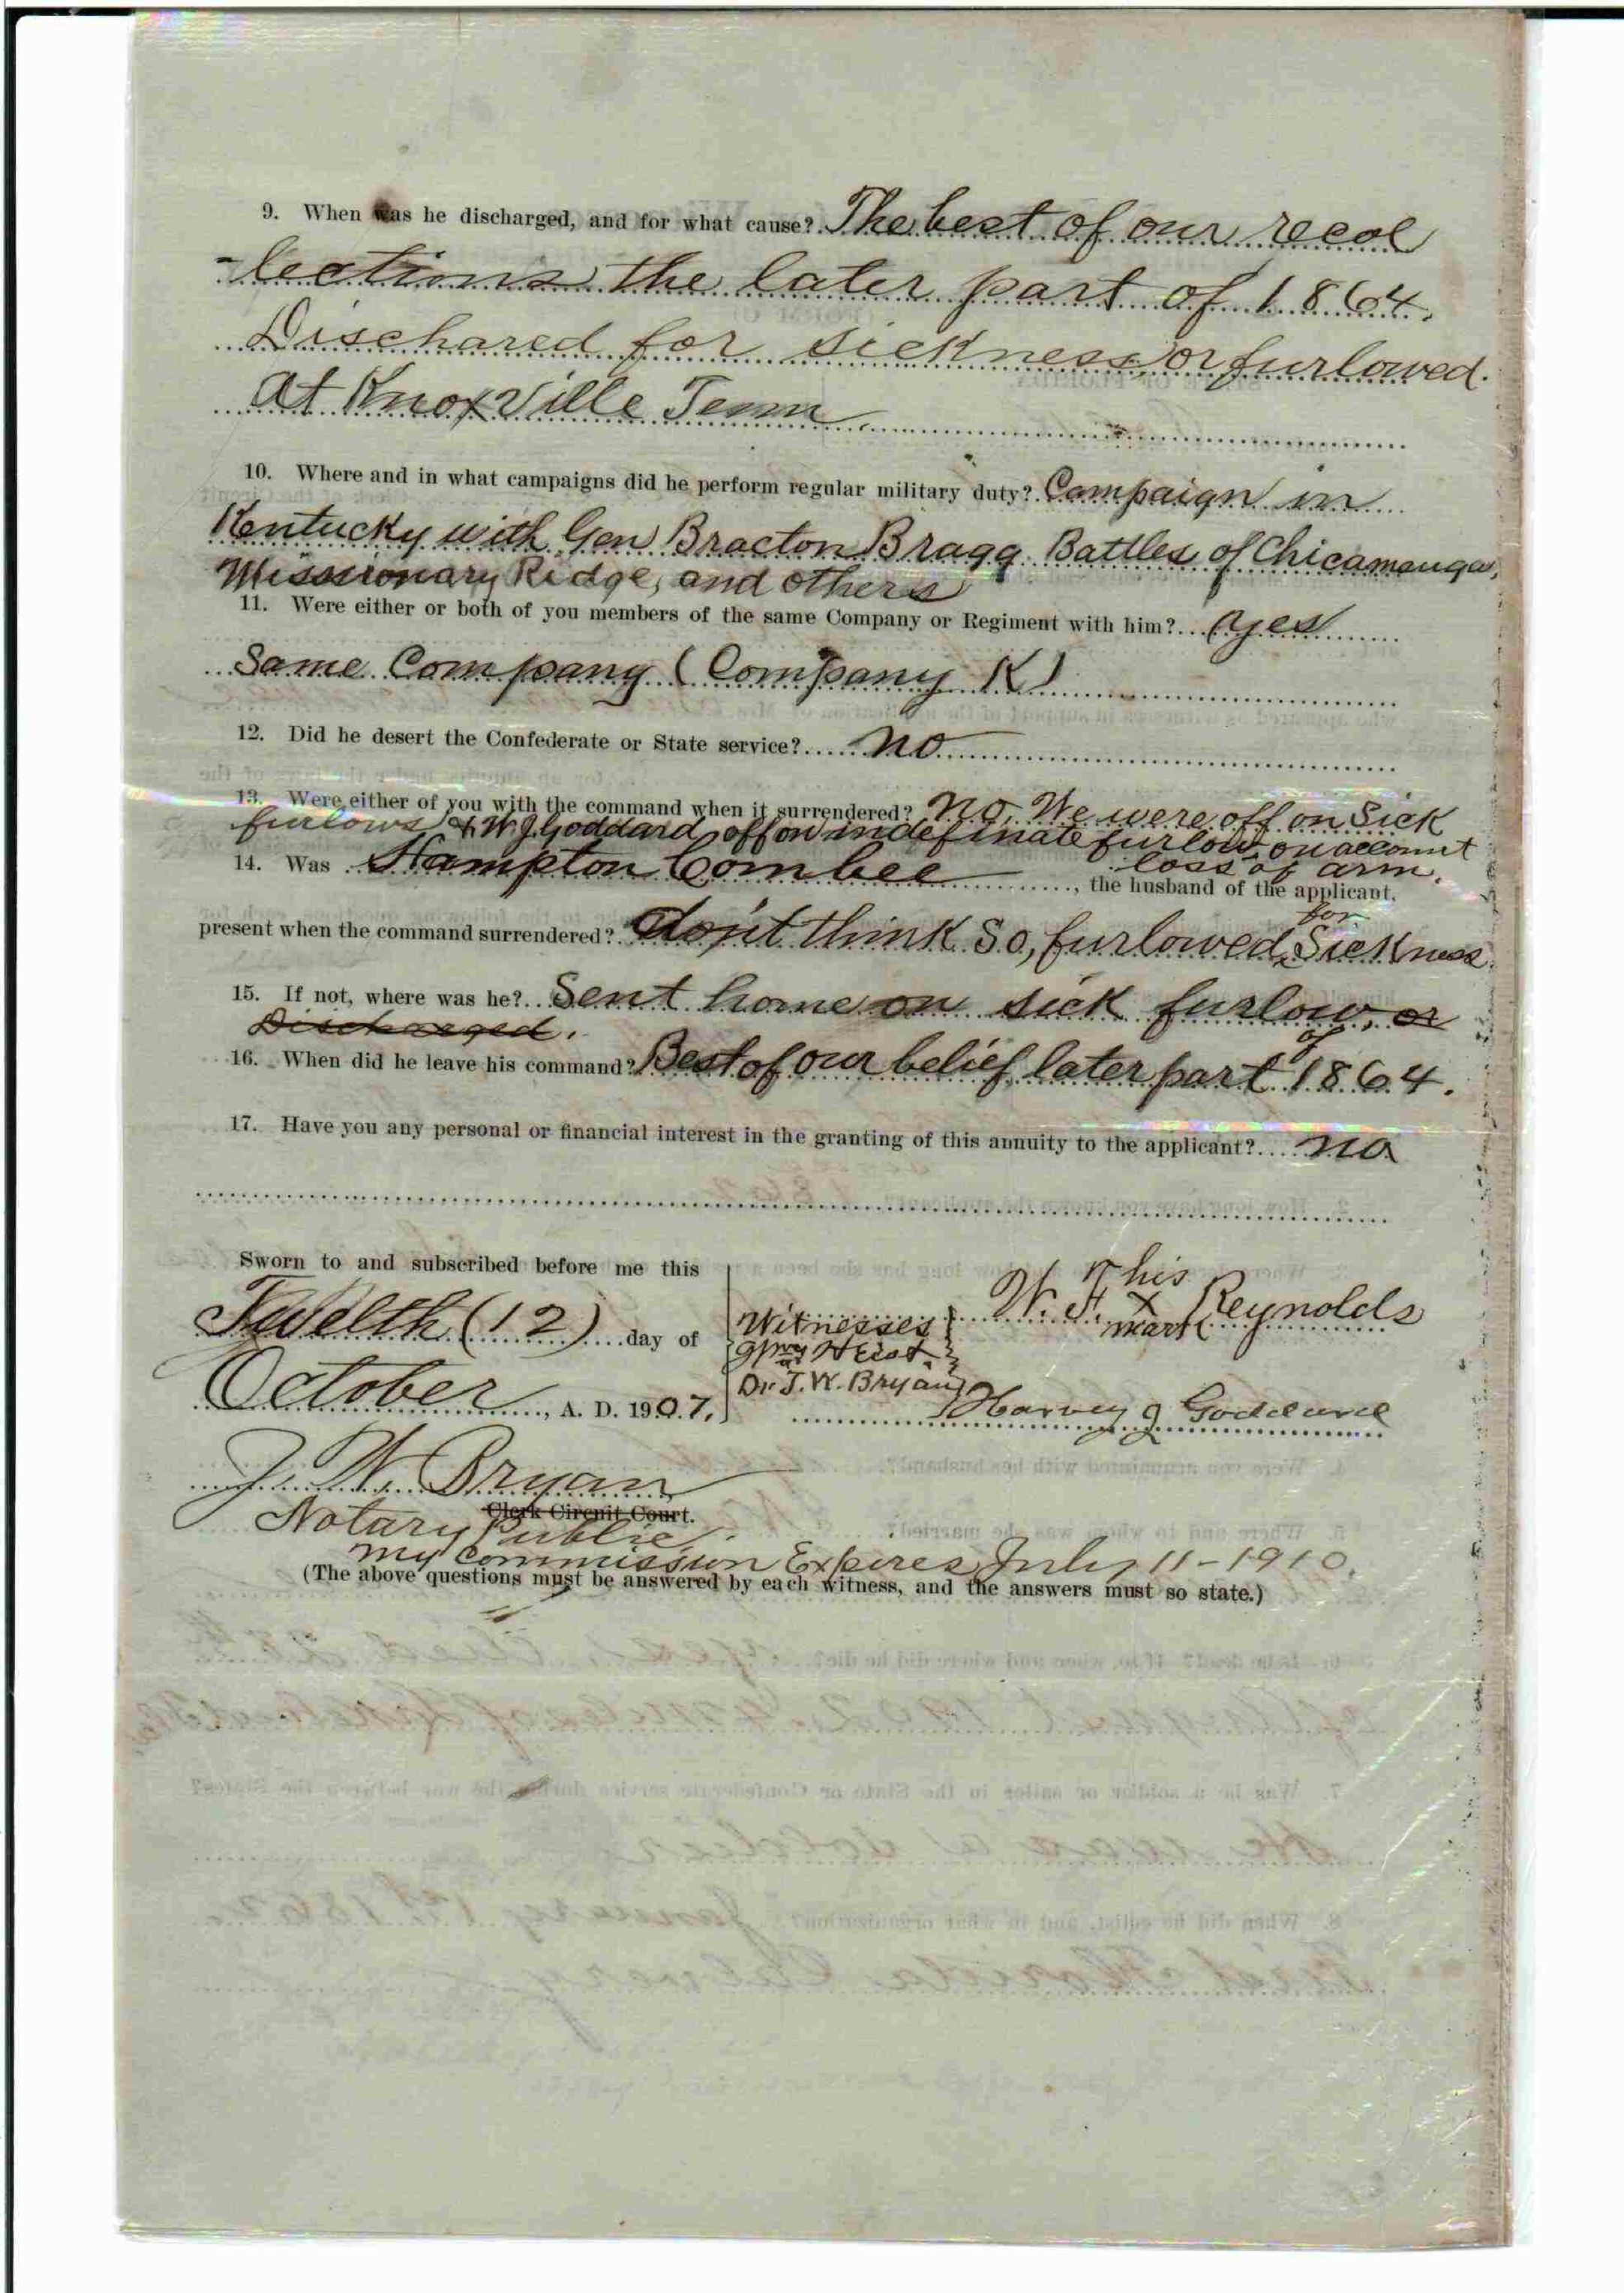 9. When was he discharged, and for what cause? The best of our recol
-lections the later part of 1864.
Dischared for sickness, or furlowed.
At Knoxville Tenn
10. Where and in what campaigns did he perform regular military duty? Campaign in
Kentucky with Gen Bracton Bragg Battles of Chicamauga,
Missionary Ridge, and others
11. Were either or both of you members of the same Company or Regiment with him? yes
Same Company (Company K)
12. Did he desert the Confederate or State service? no
13. Were either of you with the command when it surrendered? No, We were off on Sick
furlows & W.J. Goddard off on indefinate furlow on account
loss of arm.
14. Was Hampton Combee, the husband of the applicant,
present when the command surrendered? don't think so, furlowed for Sickness.
15. If not, where was he? Sent home on sick furlow, or
Discharged.
16. When did he leave his command? Best of our belief, later part of 1864.
17. Have you any personal or financial interest in the granting of this annuity to the applicant? no
Sworn to and subscribed before me this
Twelth (12) day of
October, A. D. 1907.
Witnesses
Dr. J. W. Bryan
his
W. H. x Reynolds
mark
Harvey J Goddard
J. W. Bryan
Clerk Circuit Court.
Notary Public.
my commission Expires July 11-1910.
(The above questions must be answered by each witness, and the answers must so state.)